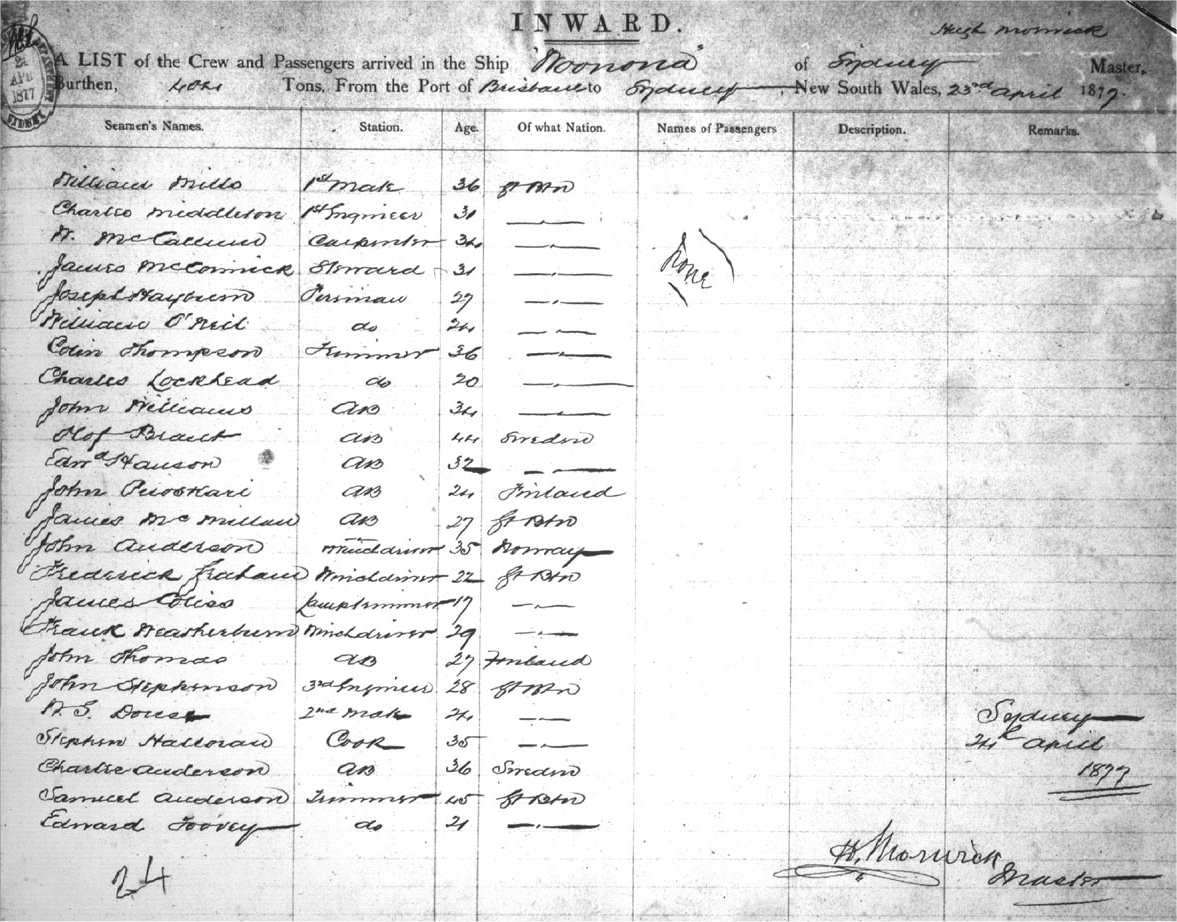 INWARD.
Hugh Morwick
A LIST of the Crew and Passengers arrived in the Ship "Woonona" of Sydney Master,
Burthen, 404 Tons, From the Port of Brisbane to Sydney New South Wales, 23rd April 1877.
24 APR 1877 SYDNEY
Seamen's Names. Station. Age. Of what Nation. Names of Passengers Description. Remarks.
William Mills 1st Mate 36 Gt Btn
Charles Middleton 1st Engineer 31 —„—
W. McCallum Carpenter 34 —„—
None
James McCormick Steward 31 —„—
Joseph Hayburn Fireman 27 —„—
William O'Neil do 24 —„—
Colin Thompson Trimmer 36 —„—
Charles Lockhead do 20 —„—
John Williams AB 34 —„—
Olof Brant AB 44 Sweden
Edwd Hanson AB 32 —„—
John AB 24 Finland
James McMillan AB 27 Gt Btn
John Anderson Winchdriver 35 Norway
Frederick Graham Winchdriver 22 Gt Btn
James Lamptrimmer 17 —„—
Frank Weatherburn Winchdriver 29 —„—
John Thomas AB 27 Finland
John Stephenson 3rd Engineer 28 Gt Btn
W. G. 2nd Mate 24 —„—
Stephen Halloran Cook 35 —„—
Charlie Anderson AB 36 Sweden
Samuel Anderson Trimmer 45 Gt Btn
Edward Toovey do 21 —„—
Sydney
24th April
1877
24
H. Morwick
Master